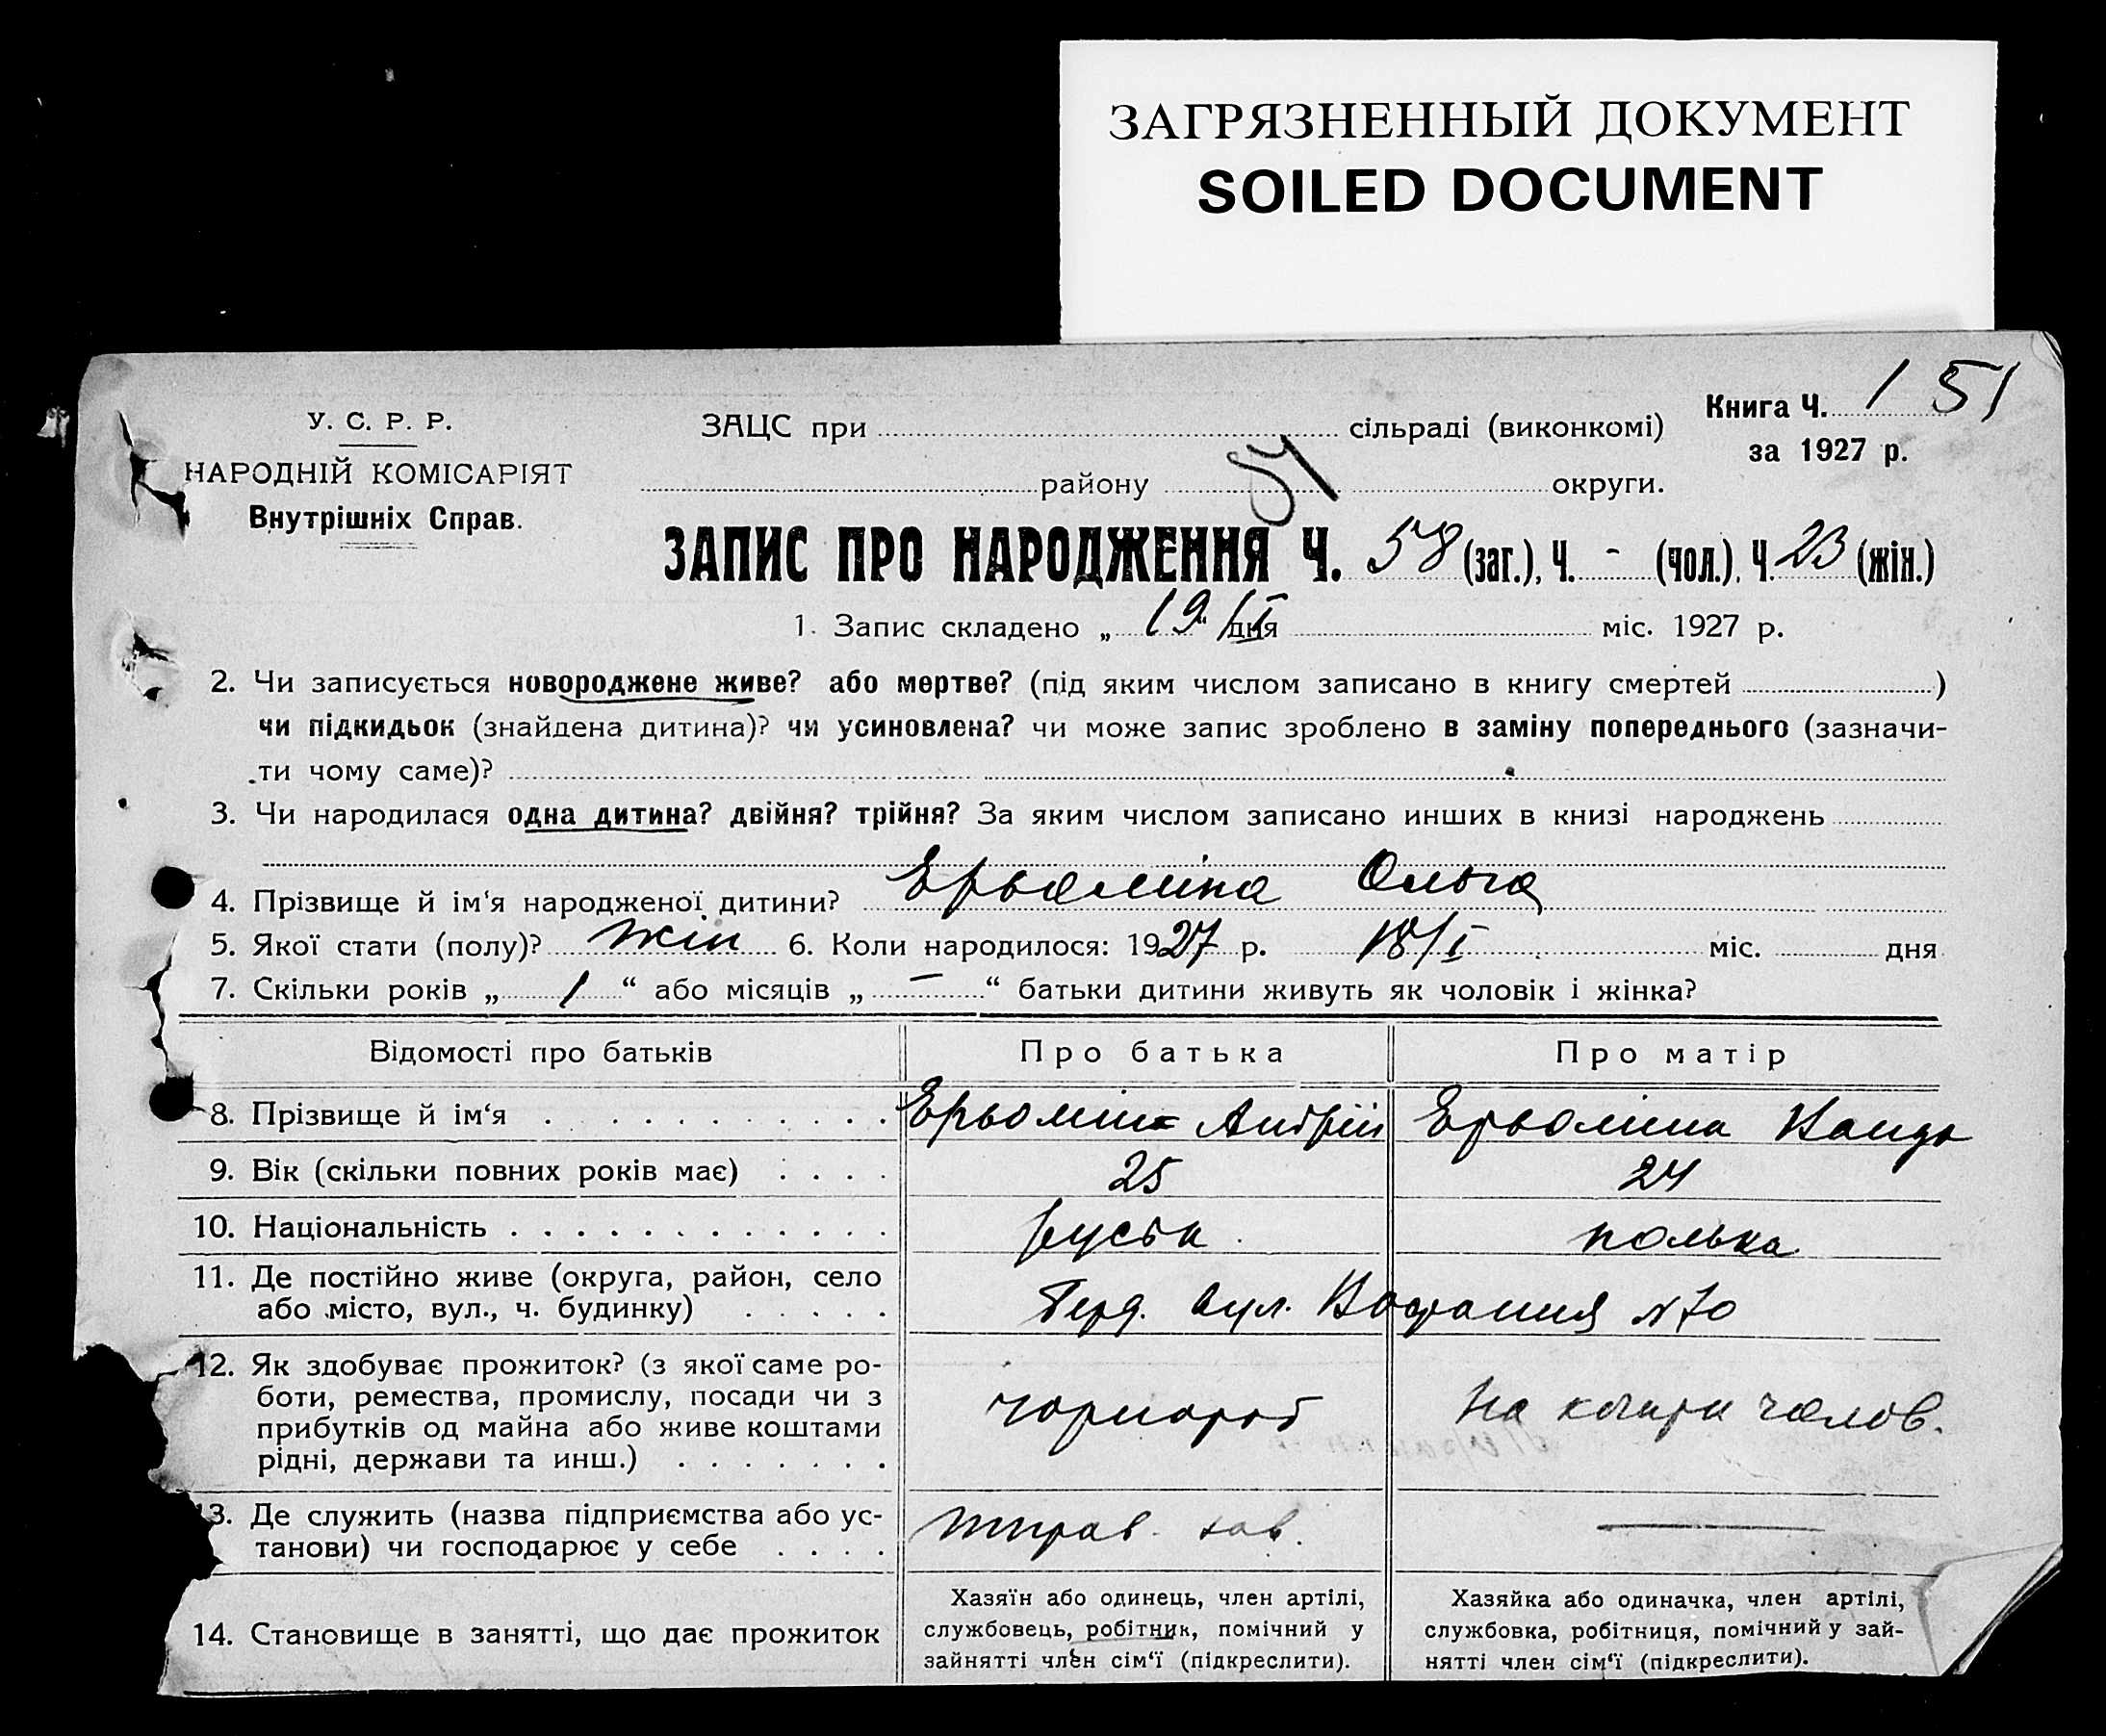 ЗАГРЯЗНЕННЫЙ ДОКУМЕНТ
SOILED DOCUMENT
Книга Ч. 1 51
за 1927 р.
У. С. Р. Р.
НАРОДНІЙ КОМІСАРІЯТ
Внутрішніх Справ.
ЗАЦС при сільраді (виконкомі)
району округи.
ЗАПИС ПРО НАРОДЖЕННЯ Ч. 58 (заг.), Ч. - (чол.), Ч. 23 (жін.)
1. Запис складено „19/I“ дня міс. 1927 р.
2. Чи записується новороджене живе? або мертве? (під яким числом записано в книгу смертей )
чи підкидьок (знайдена дитина)? чи усиновлена? чи може запис зроблено в заміну попереднього (зазначи-
ти чому саме)?
3. Чи народилася одна дитина? двійня? трійня? За яким числом записано инших в книзі народжень
4. Прізвище й ім‘я народженої дитини? Ерьоміна Ольга
5. Якої стати (полу)? жін 6. Коли народилося: 1927 р. 18/I міс. дня
7. Скільки років „1“ або місяців „–“ батьки дитини живуть як чоловік і жінка?
Відомості про батьків Про батька Про матір
8. Прізвище й ім‘я Ерьомін Андрій Ерьоміна Ванда
9. Вік (скільки повних років має) 25 24
10. Національність руськ полька
11. Де постійно живе (округа, район, село
або місто, вул., ч. будинку) вул. №70
12. Як здобуває прожиток? (з якої саме ро-
боти, ремества, промислу, посади чи з
прибутків од майна або живе коштами
рідні, держави та инш.) чорнороб На кошти чолов.
13. Де служить (назва підприємства або ус-
танови) чи господарює у себе зав. —
14. Становище в занятті, що дає прожиток
Хазяїн або одинець, член артілі,
службовець, робітник, помічний у
зайнятті член сім‘ї (підкреслити).
Хазяйка або одиначка, член артілі,
службовка, робітниця, помічний у зай-
нятті член сім‘ї (підкреслити).